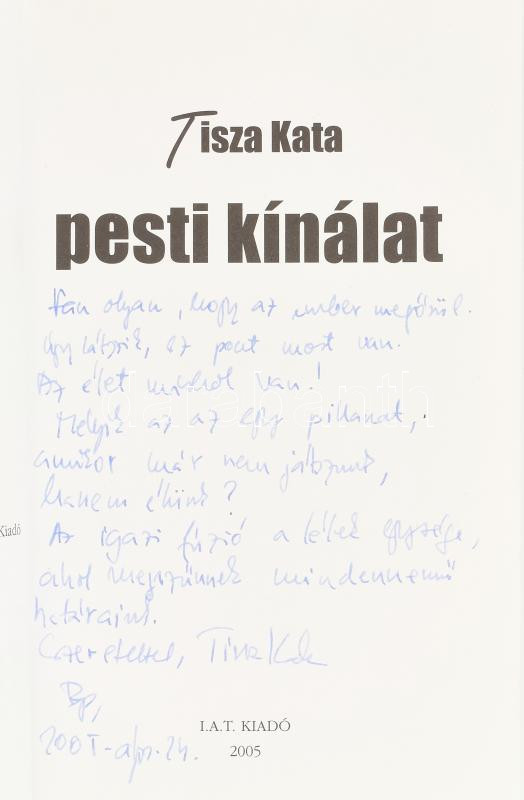 Tisza Kata
pesti kínálat
Van olyan, hogy az ember megőrül.
Úgy látszik, ez pont most van.
Az élet máshol van!
Melyik az az egy pillanat,
amikor már nem játszunk,
hanem élünk?
Kiadó
Az igazi fúzió a lélek egysége,
ahol megszűnnek mindennemű
határaink.
Szeretettel, Tisza Kata
Bp,
2005-ápr. 24.
I.A.T. KIADÓ
2005
darabanth